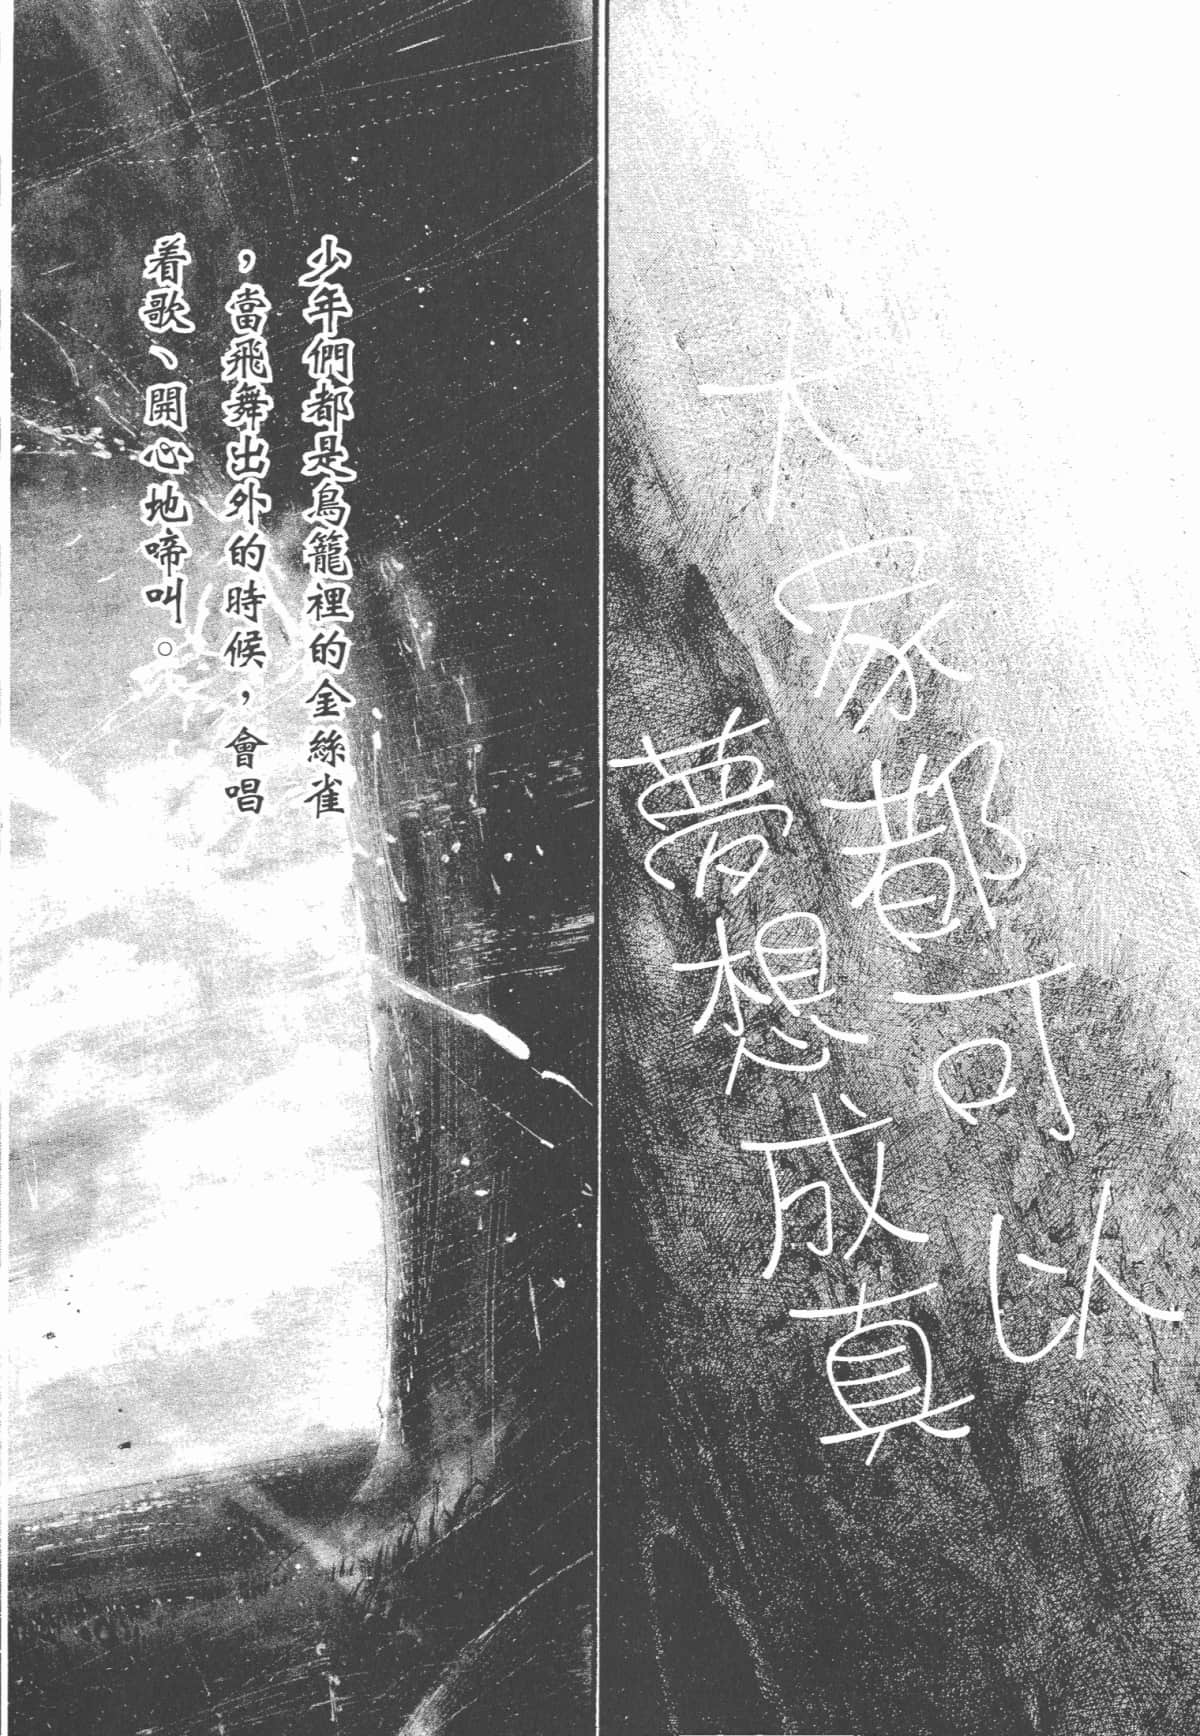 大家都可以
夢想成真
少年們都是鳥籠裡的金絲雀
，當飛舞出外的時候，會唱
着歌、開心地啼叫。